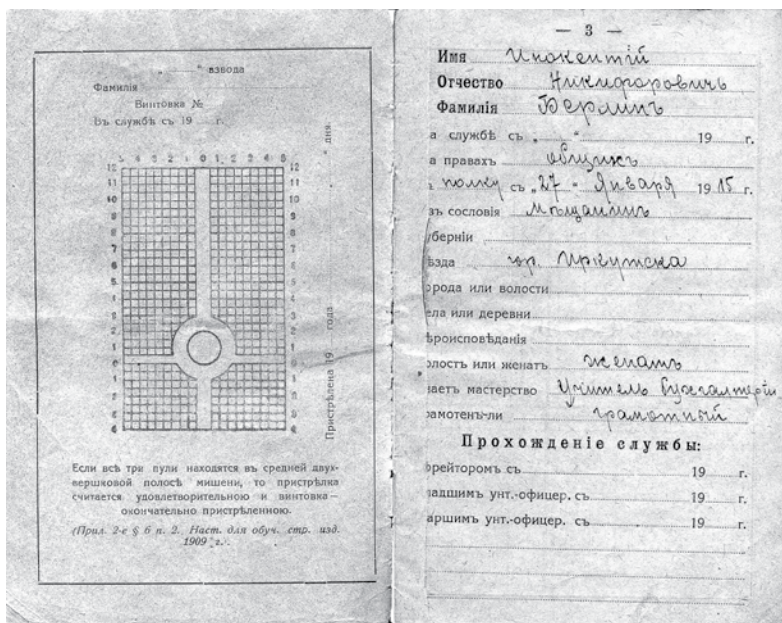 „ “ взвода
Фамилія
Винтовка №
Въ службѣ съ 19 г.
5 4 3 2 1 0 1 2 3 4 5
12 12
11 11
10 10
9 9
8 8
7 7
6 6
5 5
4 4
3 3
2 2
1 1
0 0
1 1
2 2
3 3
4 4
Пристрѣлена 19 года „ “ дня.
Если всѣ три пули находятся въ средней двух-
вершковой полосѣ мишени, то пристрѣлка
считается удовлетворительною и винтовка –
окончательно пристрѣленною.
(Прил. 2-е § 6 п. 2. Наст. для обуч. стр. изд.
1909 г.
— 3 —
Имя Инокентій
Отчество Никифоровичъ
Фамилія Берлинъ
а службѣ съ „ “ 19 г.
а правахъ общихъ
полку съ „27“ Января 1915 г.
зъ сословія Мѣщанинъ
уберніи
ѣзда гор. Иркутска
орода или волости
ела или деревни
ѣроисповѣданія
олостъ или женатъ женатъ
наетъ мастерство Учитель бухгалтеріи
рамотенъ-ли грамотный
Прохожденіе службы:
фрейторомъ съ 19 г.
ладшимъ унт.-офицер. съ 19 г.
аршимъ унт.-офицер. съ 19 г.